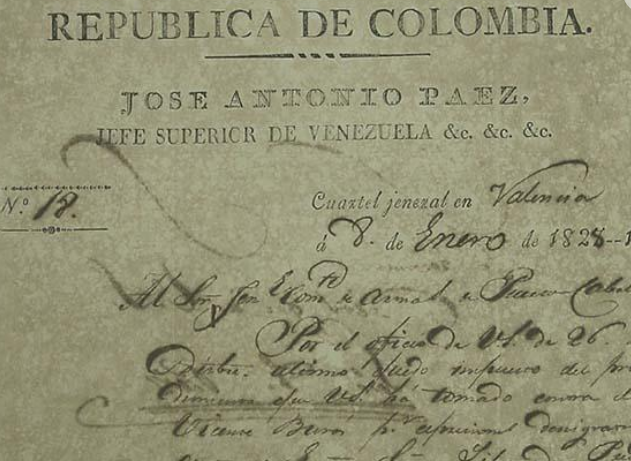 REPUBLICA DE COLOMBIA.
JOSE ANTONIO PAEZ,
JEFE SUPERIOR DE VENEZUELA &c. &c. &c.
N.º 18.
Cuartel jeneral en Valencia
á 8. de Enero de 1828--1
Al Sor Jen Comte de Armas de Puerto Cabel
Por el oficio de VS. de 26.
Dicbre. ultimo quedo impuesto del pro
que VS. ha tomado contra el
Vicente